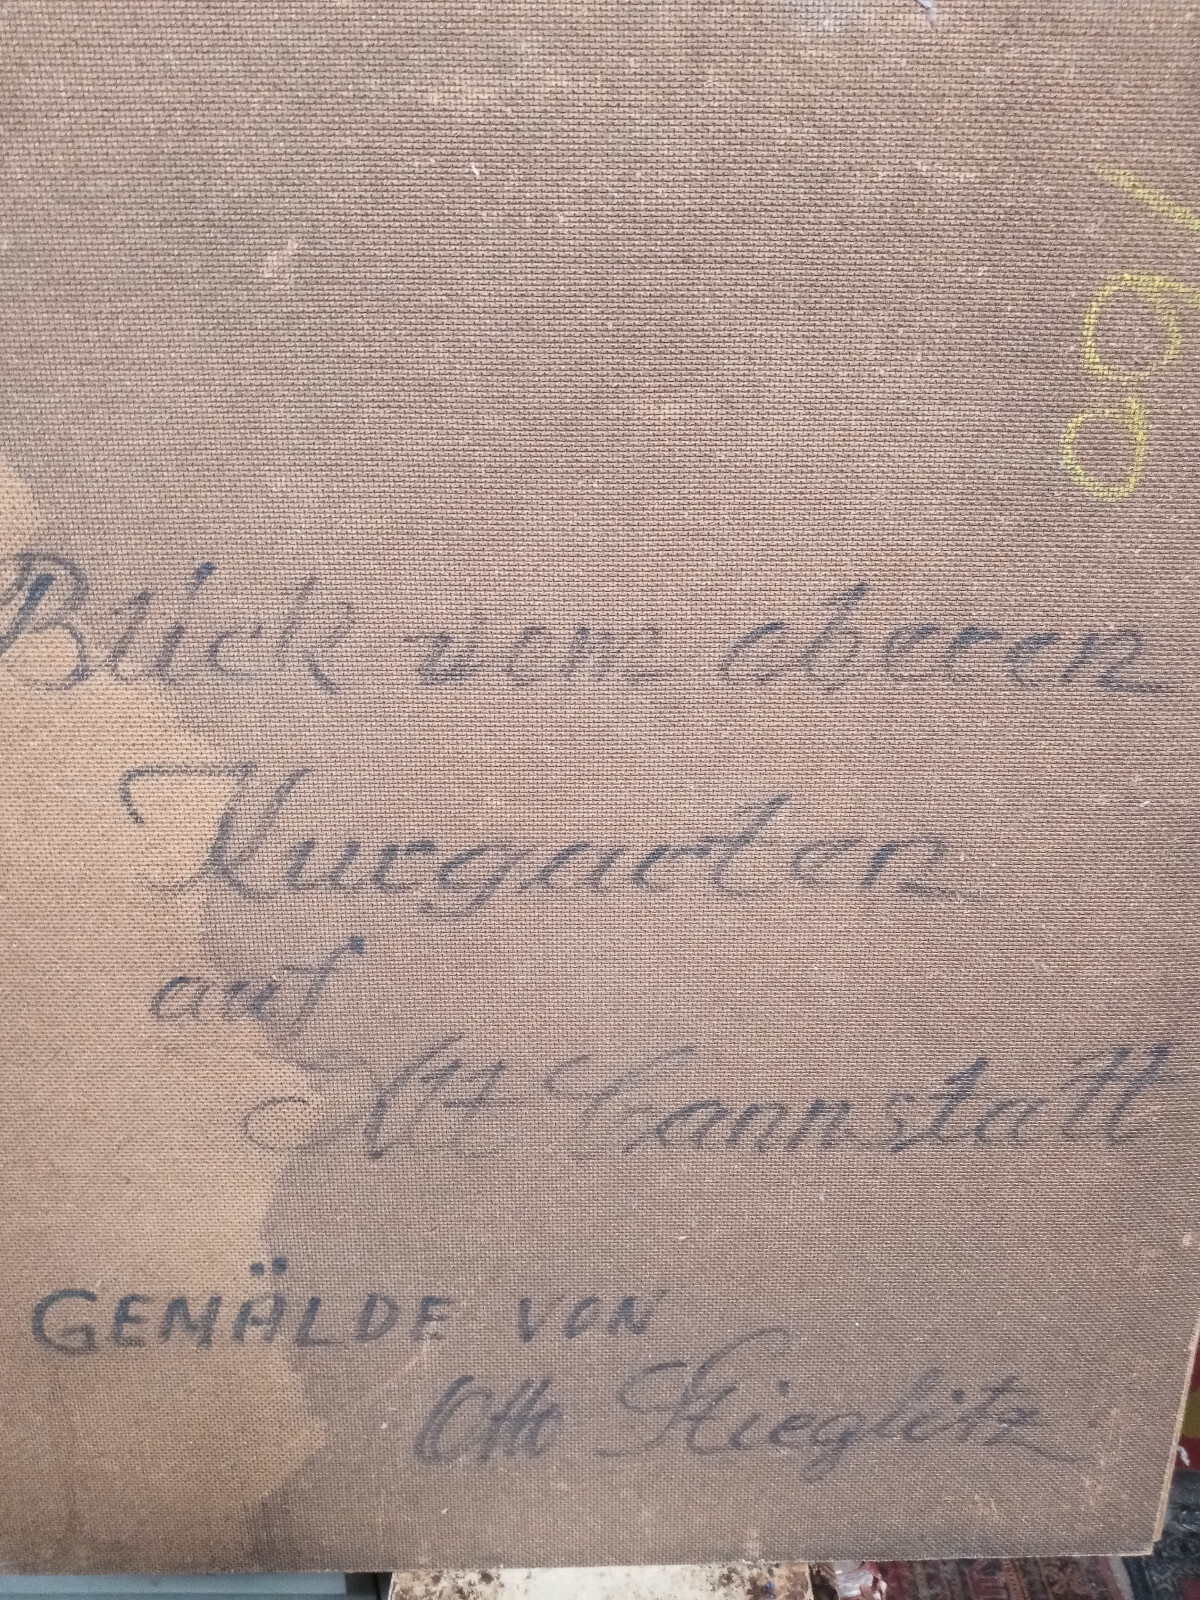 Blick vom oberen
Kurgarten
auf
Alt Cannstatt
GEMÄLDE VON
Otto Stieglitz